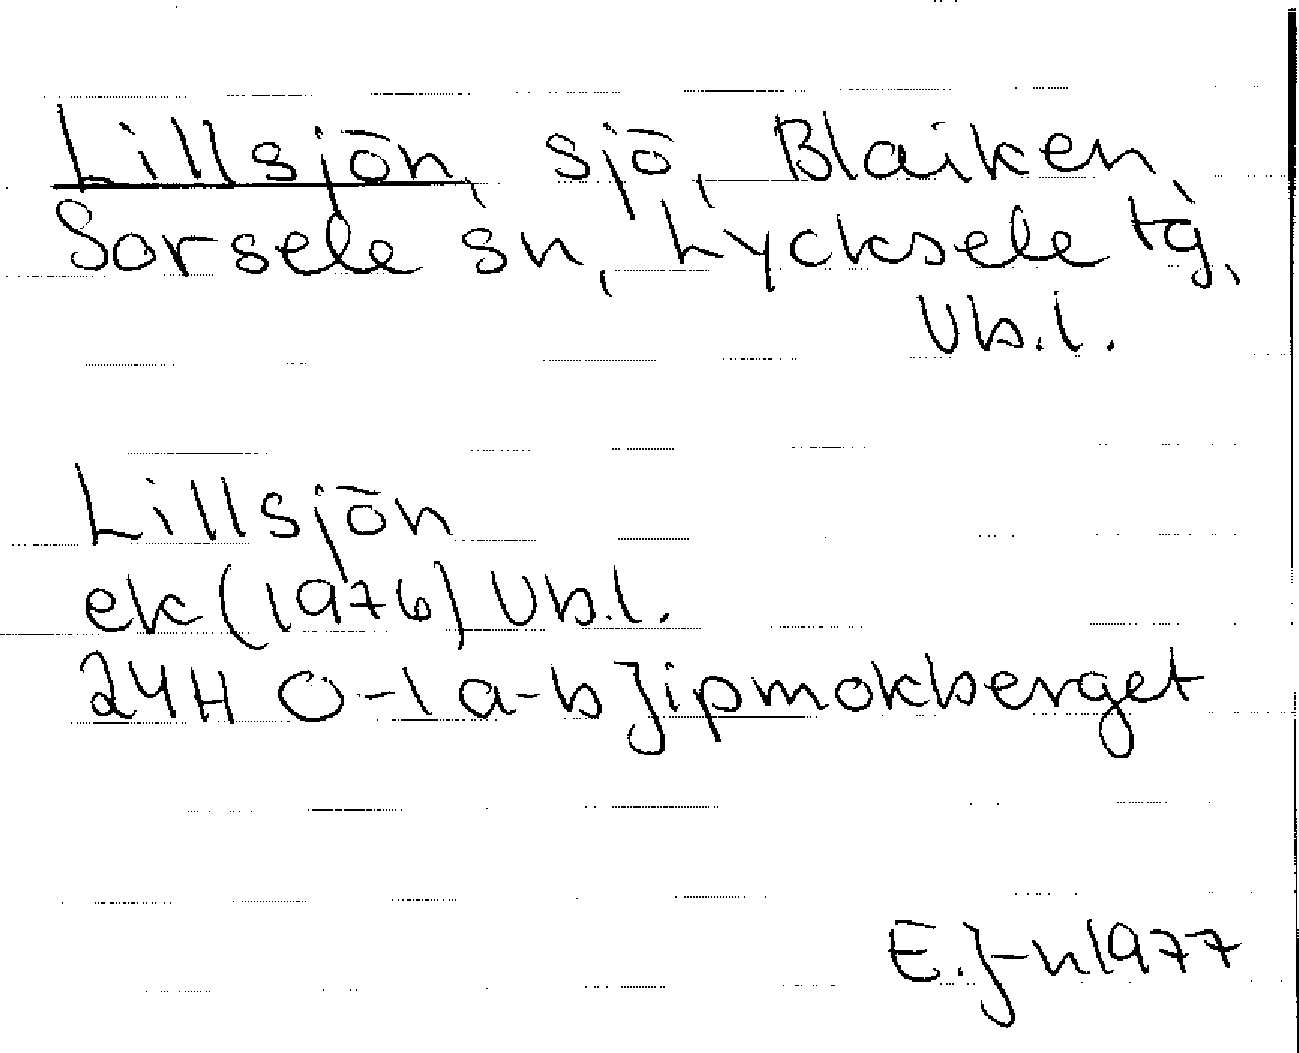 Lillsjön, sjö, Blaiken,
Sorsele sn, Lycksele tg,
Vb.l.
Lillsjön
ek (1976) Vb.l.
24H 0-1 a-b Jipmokberget
E.J-n 1977